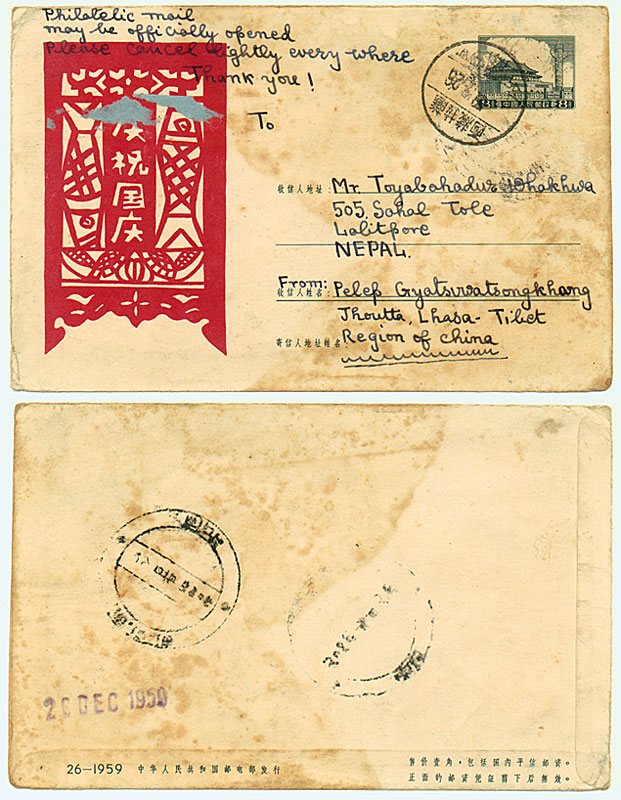 Philatelic mail
may be officially opened
Please cancel lightly every where
Thank you!
8 中国人民邮政 8
庆祝国庆
To
收信人地址: Mr. Toyabahadur Dhakhwa
505, Sahal Tole
Lalitpore
NEPAL.
From:
收信人姓名: Pelep Gyatsuwatsongkhang
Jhoutta, Lhasa-Tibet
寄信人地址姓名: Region of China
DEC 1959
26—1959 中华人民共和国邮电部发行
售价壹角,包括国内平信邮资。
正面的邮资凭证剪下后无效。